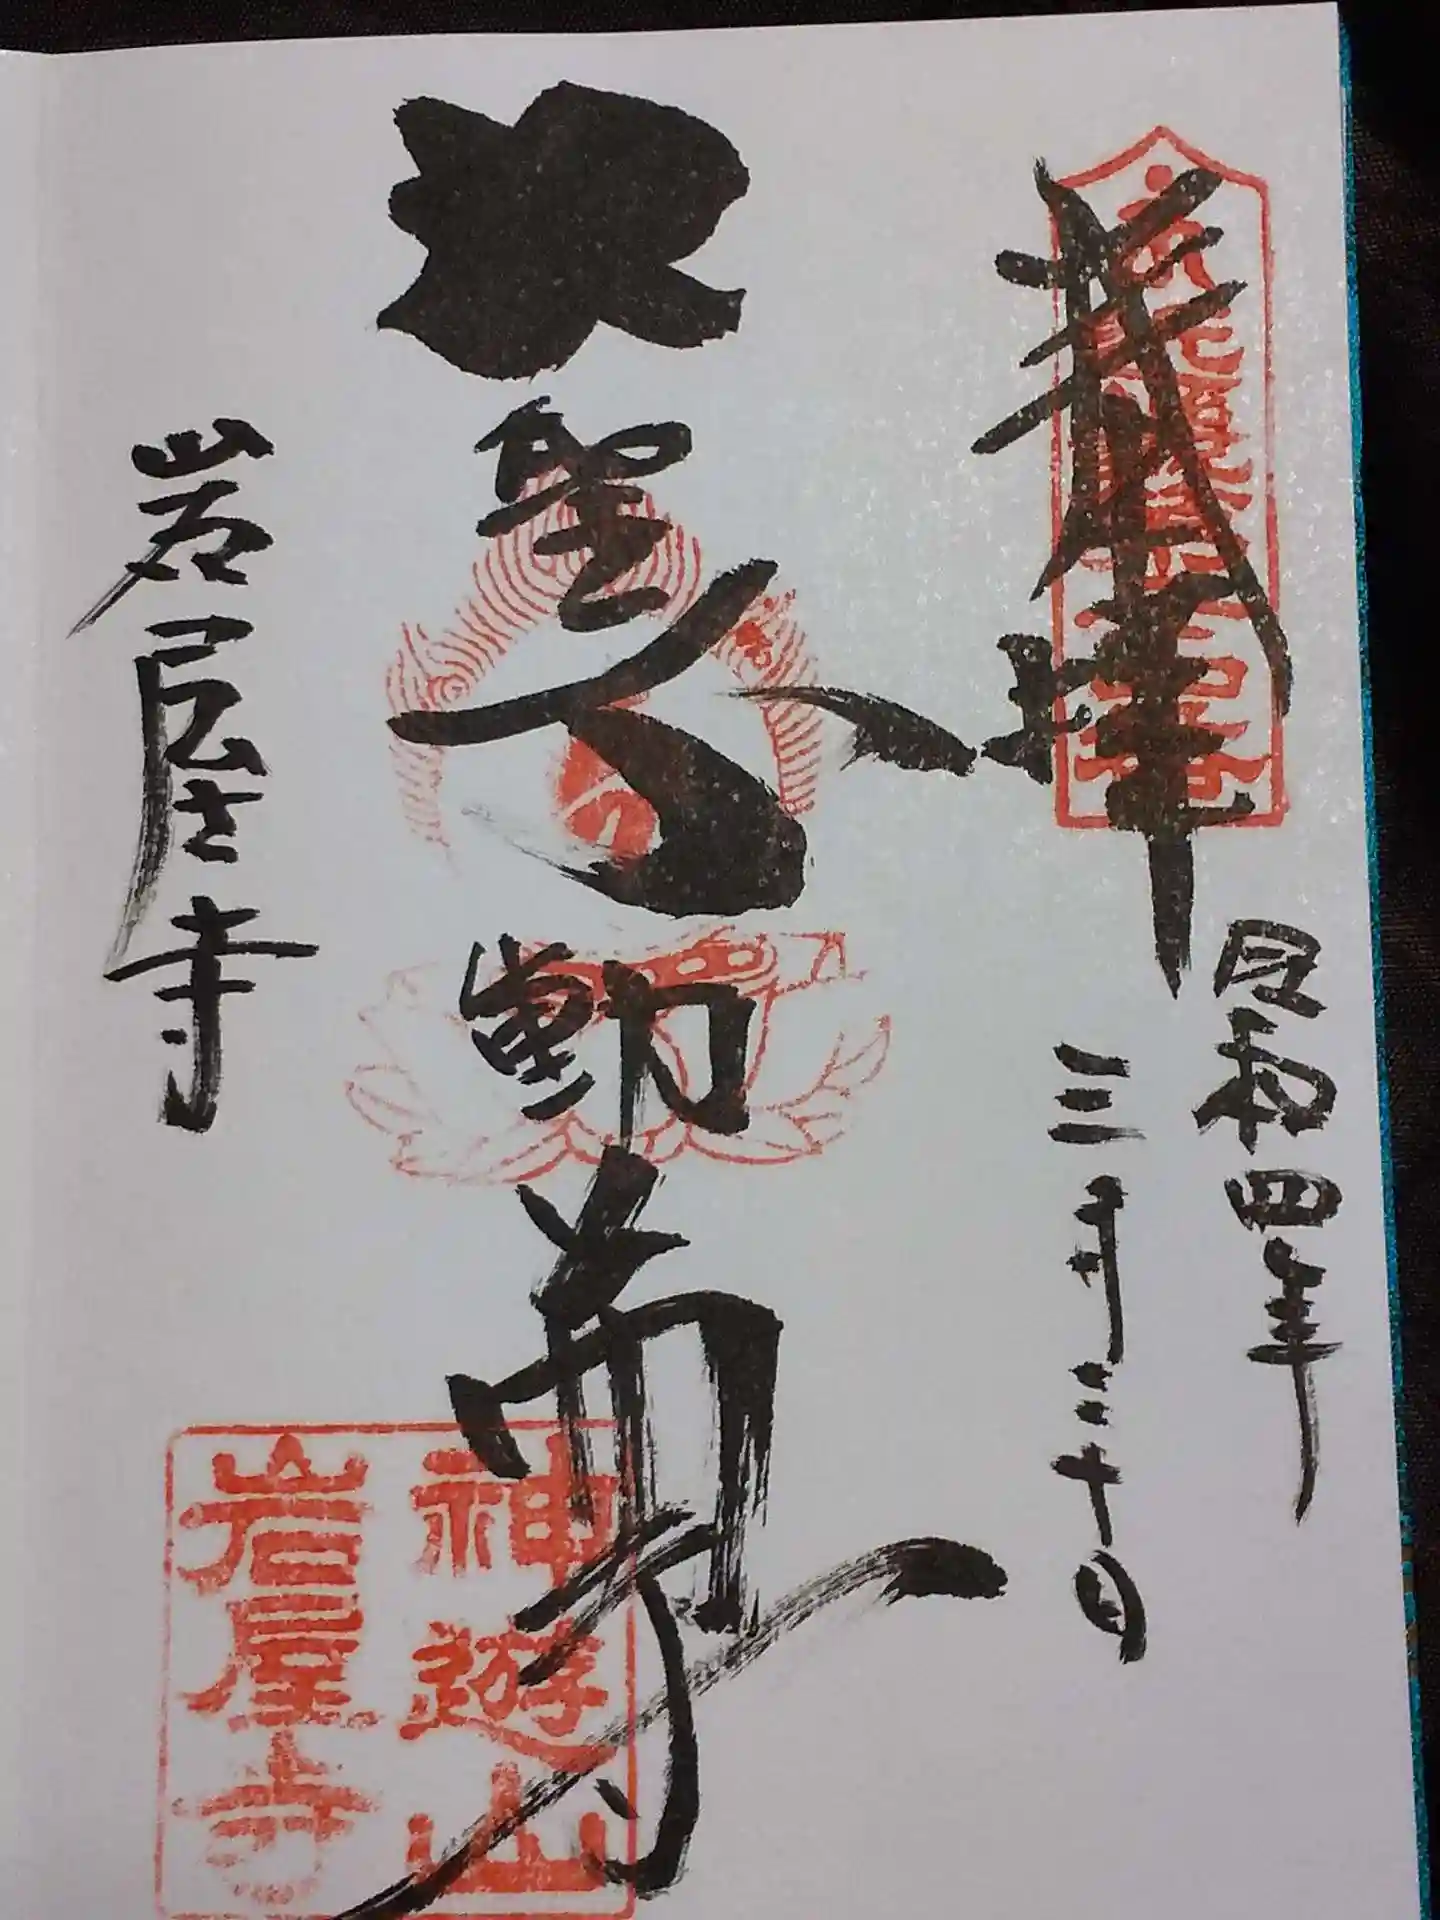 奉拝
令和四年
三月三十日
大聖不動尊
岩屋寺
神遊山
岩屋寺